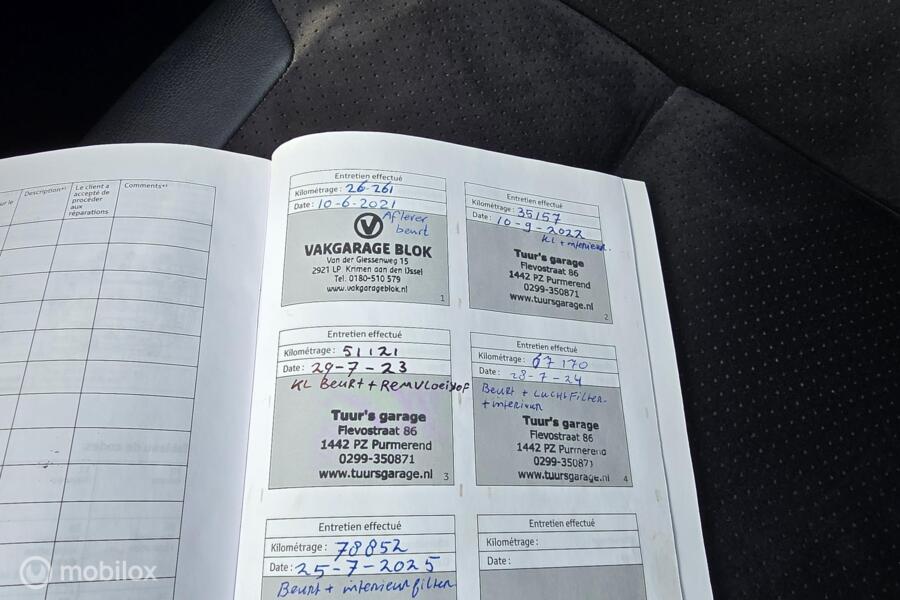 ur le
Description*¹
Le client a
accepté de
procéder
aux
réparations
Comments*¹
Entretien effectué
Kilométrage : 26-261
Date : 10-6-2021
Aflever
beurt
VAKGARAGE BLOK
Van der Giessenweg 15
2921 LP Krimpen aan den IJssel
Tel. 0180-510 579
www.vakgarageblok.nl
1
Entretien effectué
Kilométrage : 35157
Date : 10-9-2022
KL + interieur.
Tuur's garage
Flevostraat 86
1442 PZ Purmerend
0299-350871
www.tuursgarage.nl
2
Entretien effectué
Kilométrage : 51121
Date : 29-7-23
KL Beurt + Remvloeistof
Tuur's garage
Flevostraat 86
1442 PZ Purmerend
0299-350871
www.tuursgarage.nl
3
Entretien effectué
Kilométrage : 67170
Date : 28-7-24
Beurt + Luchtfilter
+ interieur
Tuur's garage
Flevostraat 86
1442 PZ Purmerend
0299-350871
www.tuursgarage.nl
4
Entretien effectué
Kilométrage : 78852
Date : 25-7-2025
Beurt + interieurfilter
Entretien effectué
Kilométrage :
Date :
mobilox